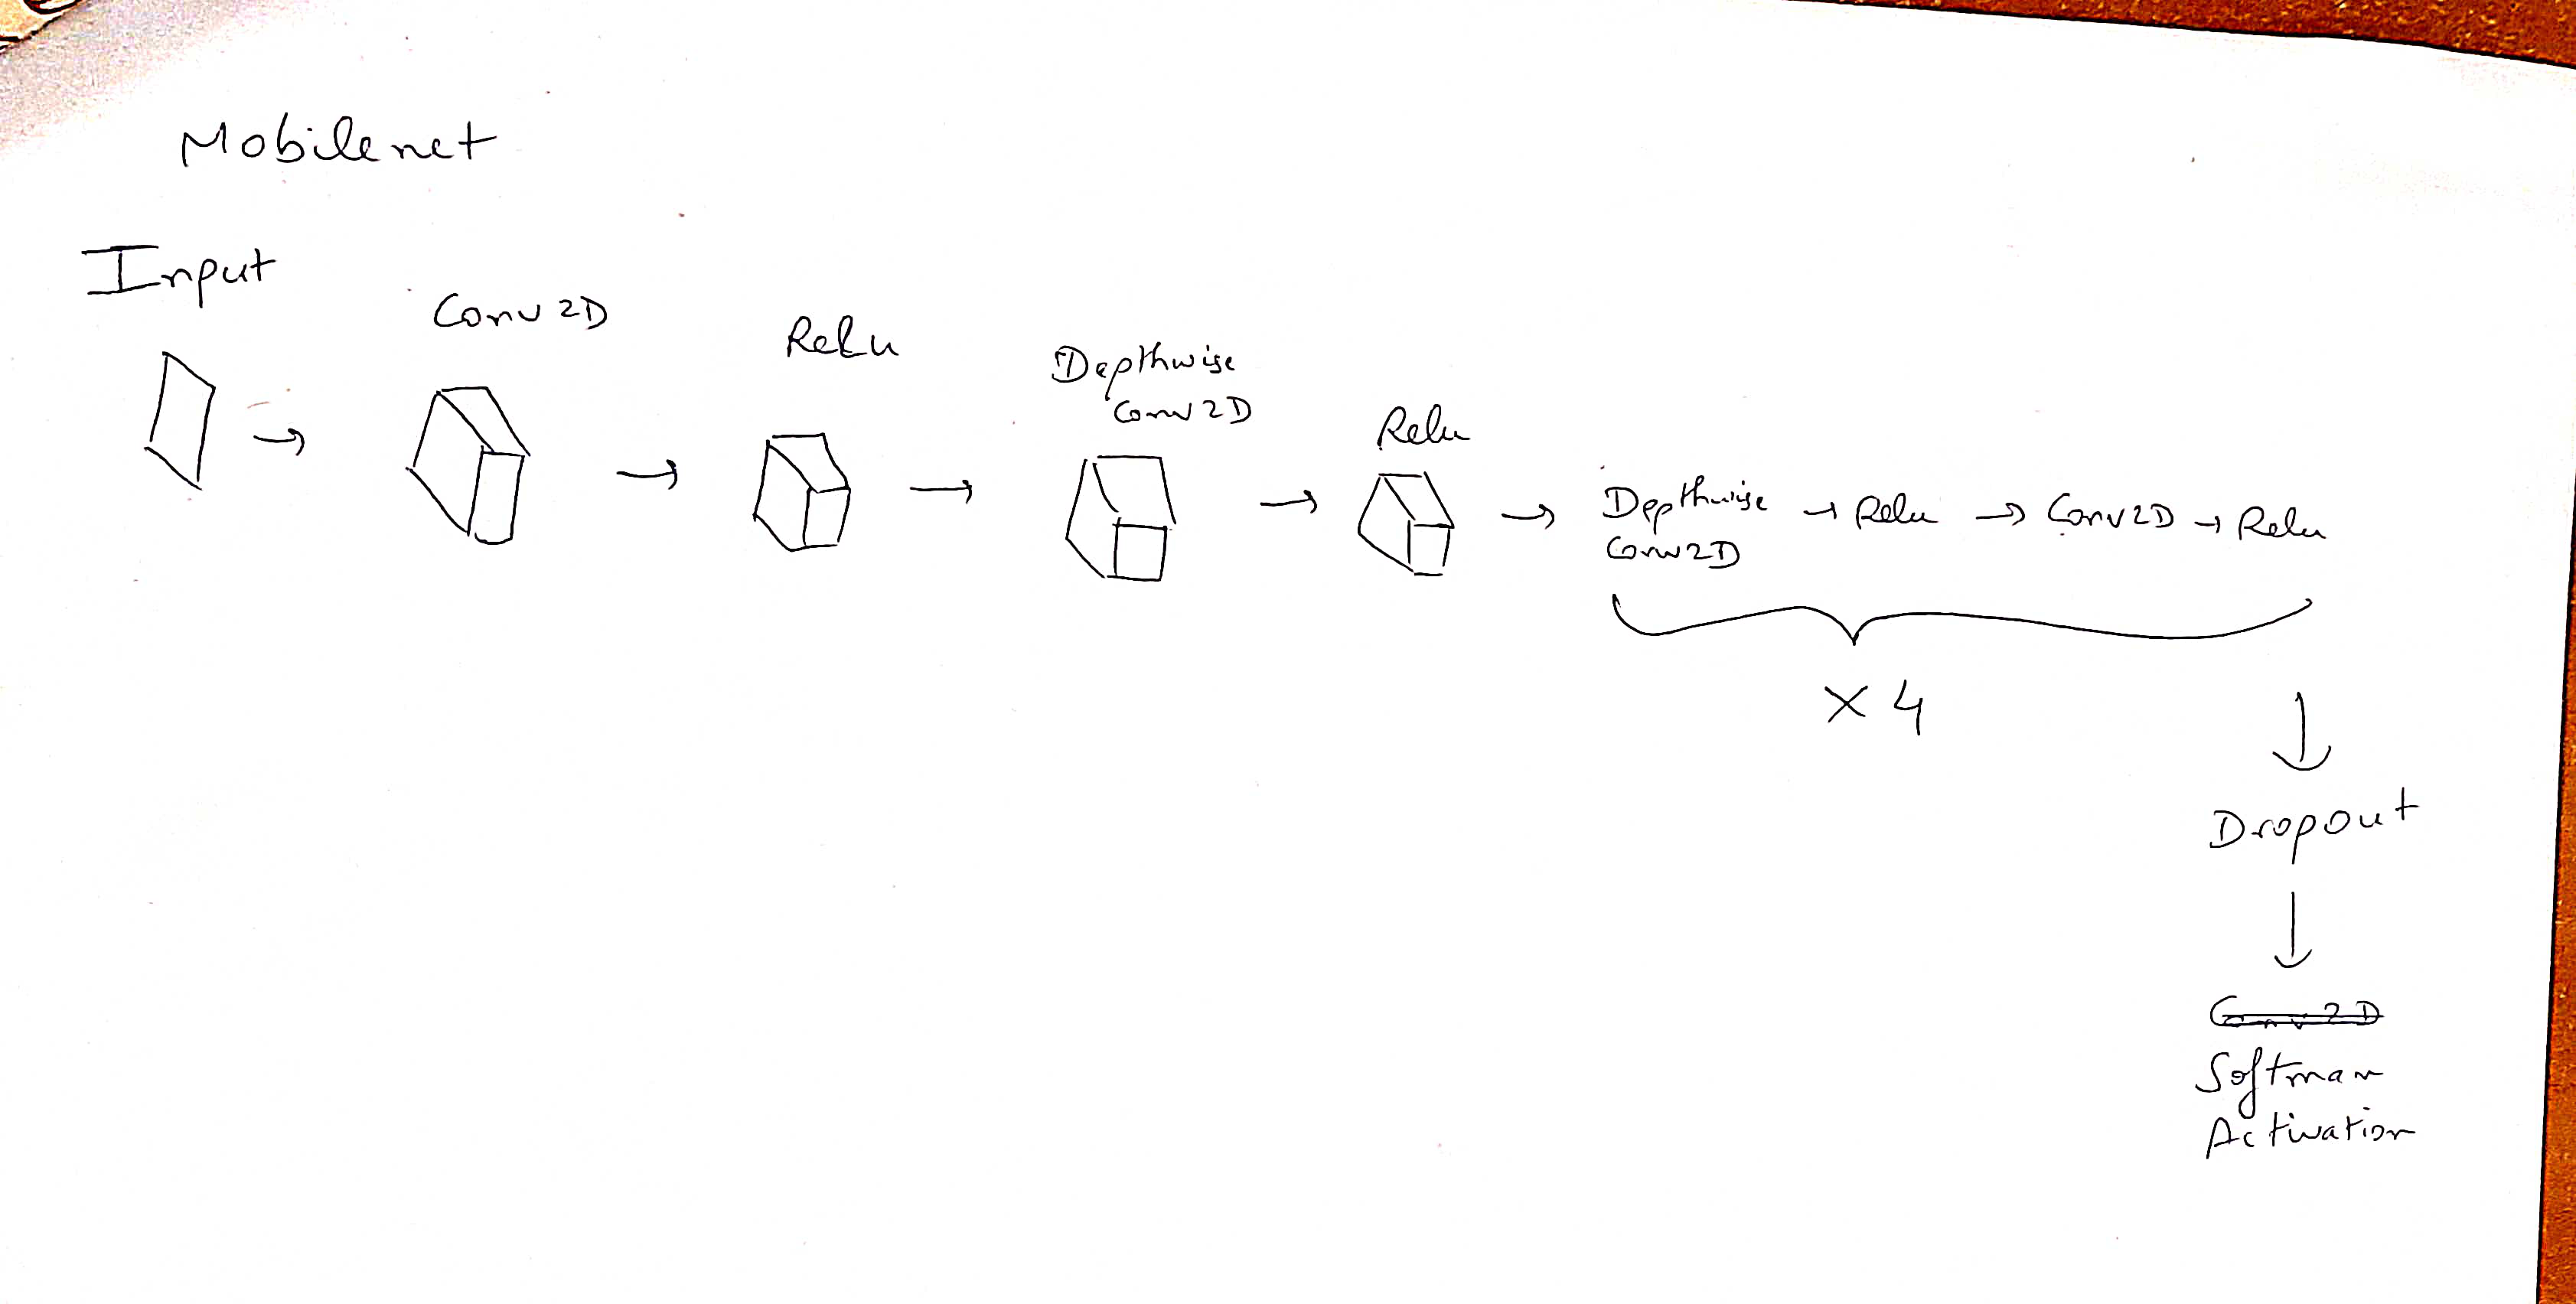 Mobilenet
Input
Conv2D
Relu
Depthwise
Conv2D
Relu
Depthwise → Relu → Conv2D → Relu
Conv2D
× 4
Dropout
Conv2D
Softmax
Activation